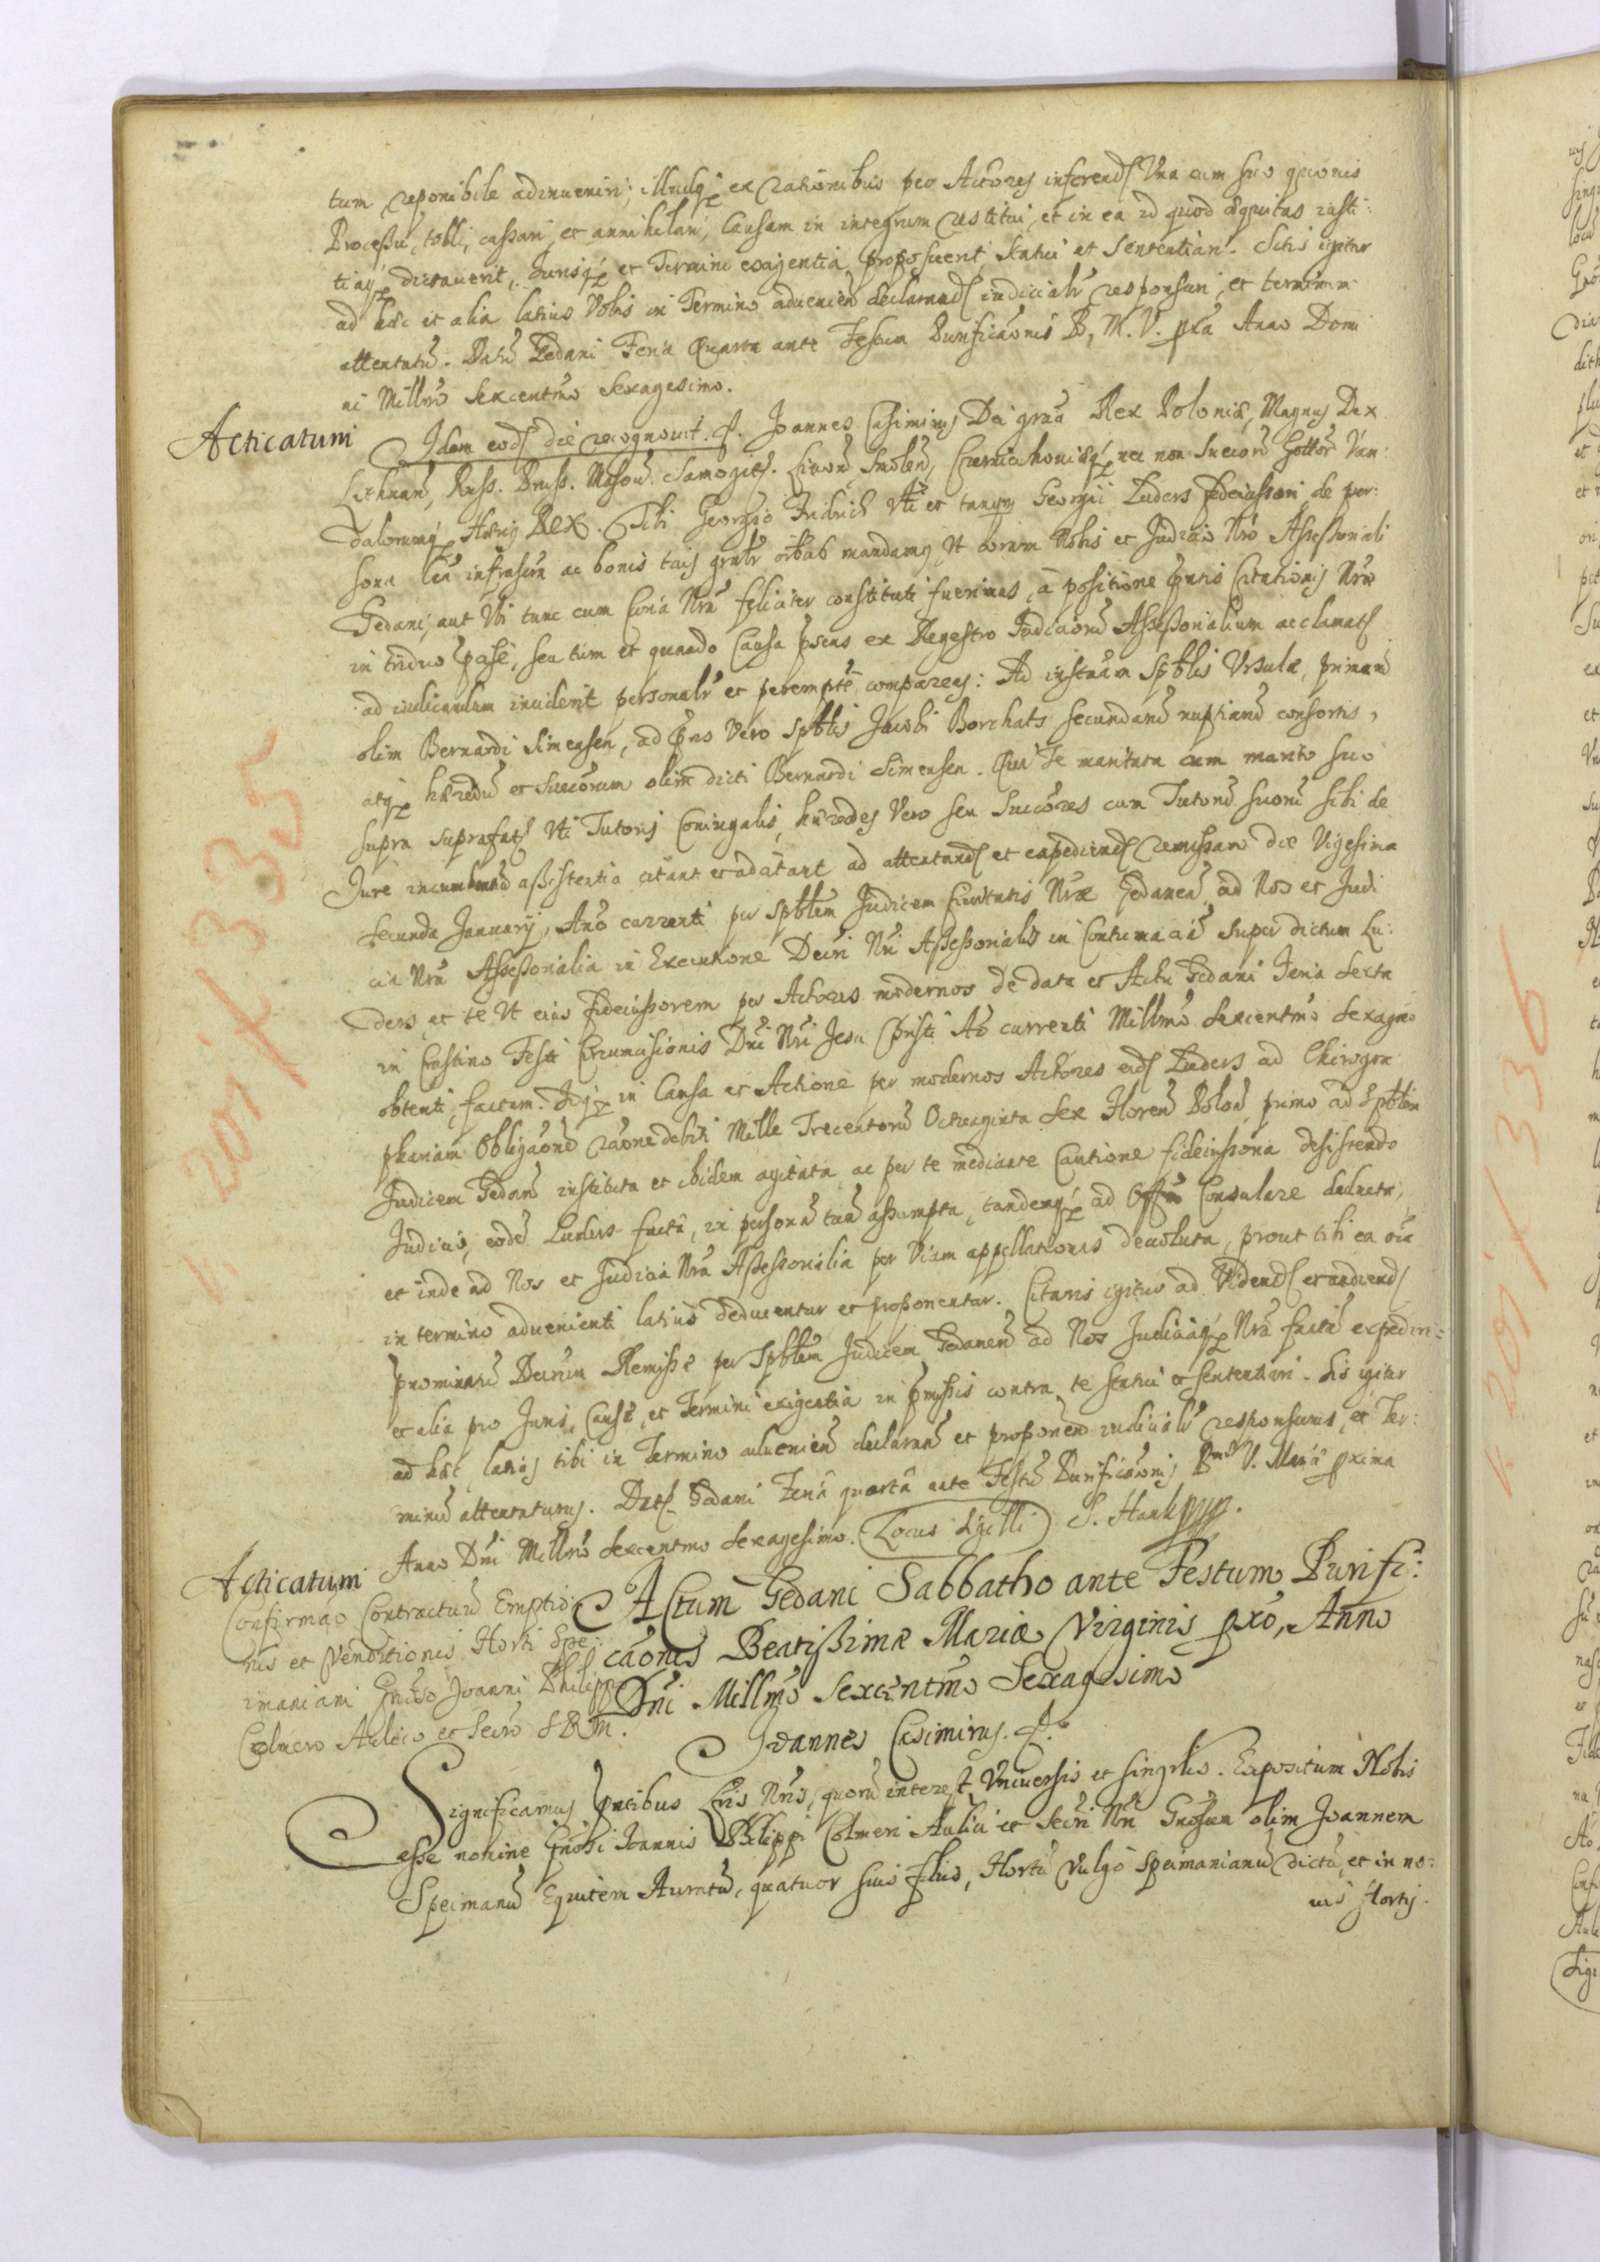 tum reponibile adinueniri; illudq; ex rationibus per Actores inferend. Vna cum suo qcionis
Processu, tolli, cassari et annihilari, Causam in integrum restitui, et in ea id quod æquitas iusti-
tiaq; dictauerit, Jurisq; et Termini exigentia proposuerit statui et sententiari. Sitis igitur
ad hæc et alia latius Vobis in Termino aduenien declarand. iudicialr responsuri, et terminum
attentaturi. Datũ Gedani Feria Quarta ante Festum Purificaõnis B. M. V. pxa Anno Domi
ni Millmo Sexcentmo Sexagesimo.
Acticatum
Idem eod die recognouit. J. Joannes Casimirus Dei gratia Rex Poloniæ, Magnus Dux
Lithuan, Russ. Pruss. Masou. Samogit. Liuon, Smolen, Czernichouiæq; nec non Suecor Gottor Van-
dalorumq; Hærs Rex. Tibi Georgio Fridrich Vti et tanqm Georgii Luders fideiussori de per-
sona tua infrascra ac bonis tuis gnalr oibus mandamus Vt coram Nobis et Judicio Nro Assessoriali
Gedani, aut Vbi tunc cum Curia Nra feliciter constituti fuerimus, à positione pntis Citationis Nræ
in triduo pcise, seu tum et quando Causa psens ex Regestro Judiciorũ Assessorialium acclamata
ad iudicandum inciderit personalr et peremptè compareas: Ad instniam Spblis Vrsulæ, primarũ
olim Bernardi Simensen, ad pns Vero spblis Jacobi Borchats secundarũ nuptiarũ consortis,
atq; hæredũ et Succorum olim dicti Bernardi Simensen. Qui Te maritata cum marito suo
supra suprafat Vti Tutoris Coniugalis, hæredes Vero seu Succores cum Tutorũ suorũ sibi de
Jure incumbend assistentia citant et adcitant ad attentand et expediend remissam die Vigesima
secunda Januarij, Anõ currenti per Spblem Judicem Ciuitatis Nræ Gedanen ad Nos et Judi
cia Nra Assessorialia in Executione Decri Nri Assessorialis in Contumaciã super dictum Lu-
ders et te Vt eius fideiussorem per Actores modernos de data et Actu Gedani Feria Sexta
in Crastino Festi Circumcisionis Dni Nri Jesu Christi Aõ currenti Millmo Sexcentmo Sexagmo
obtenti, factam. Idq; in Causa et Actione per modernos Actores eid Luders ad Chirogra
phariam Obligaõnẽ raõne debiti Mille Trecentorũ Octuaginta Sex Floren Polon, primo ad Spblem
Judicem Gedanẽ instituta et ibidem agitata ac per te mediante Cautione fideiussoria desistendo
Judicio, eodẽ Luders factâ, in personã tuã assumpta, tandemq; ad Offm Consulare deducta,
et inde ad Nos et Judicia Nra Assessorialia per Viam appellationis deuoluta, prout tibi ea oia
in termino aduenienti latius deducentur et proponentur. Citaris igitur ad Vidend et audiend
pnominatũ Decrum Remissæ per Spblem Judicem Gedanen ad Nos Judiciaq; Nra factæ expediri
et alia pro Juris, Causæ, et Termini exigentia in pmissis contra te statui et sententiari. Sis igitur
ad hæc latius tibi in Termino aduenien declaran et proponen iudicialr responsurus, et Ter-
minũ attentaturus. Dat Gedani Feria quarta ante Festũ Purificaõnis Bmæ V. Mariæ pxima
Anno Dni Millmo Sexcentmo Sexagesimo. Locus Sigilli S. Hank mpp.
Acticatum
Confirmaõ Contractus Emptio-
nis et Venditionis Horti Spe-
imaniani Gnoso Joanni Philippo
Colmero Aulico et Secro S.R.M.
Actum Gedani Sabbatho ante Festum Purifi-
caõnis Beatissimæ Mariæ Virginis pxõ, Anno
Dñi Millmõ Sexcentmõ Sexagesimõ
Joannes Casimirus. J.
Significamus pntibus Lris Nris, quorũ interest, Vniuersis et singulis. Expositum Nobis
esse nomine Gnosi Joannis Philippi Colmeri Aulici et Secri Nri Gnosum olim Joannem
Speimanũ Equitem Auratũ, quatuor suis filiis, Hortũ vulgò Speimanianũ dictũ, et in no-
uis Hortis.